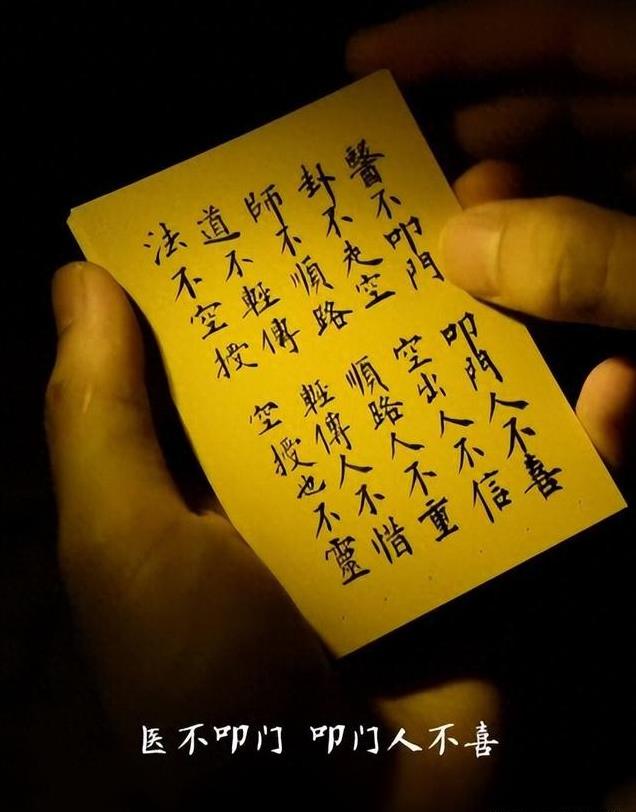 醫不叩門 叩門人不喜
卦不走空 空出人不信
師不順路 順路人不重
道不輕傳 輕傳人不惜
法不空授 空授也不靈
医不叩门 叩门人不喜